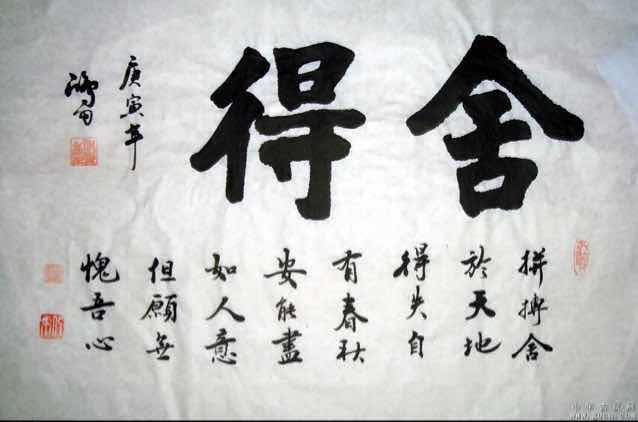 舍得
拼搏舍
於天地
得失自
有春秋
安能盡
如人意
但願無
愧吾心
庚寅年